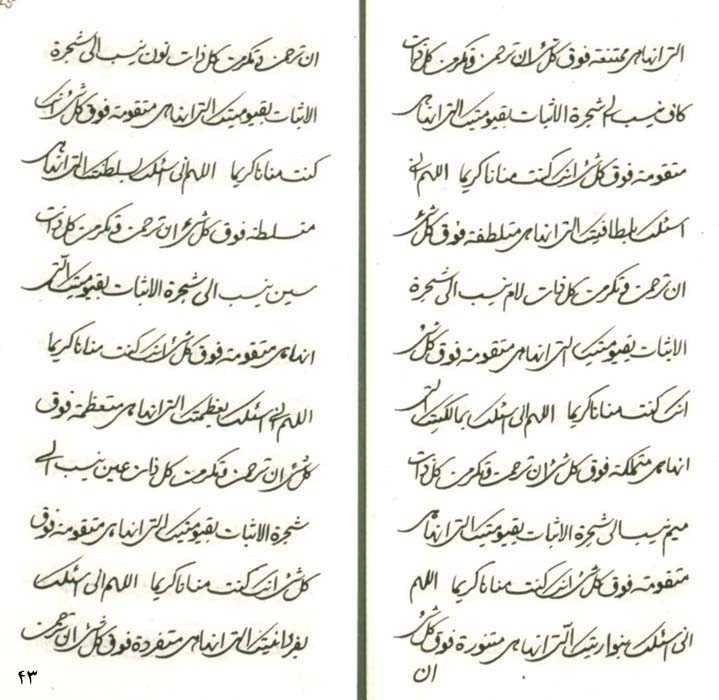 التی انها هی ممتنعة فوق کل شیء ان ترحمن و تکرمن کل ذات
کاف ینسب الی شجرة الاثبات بقیومیتک التی انها هی
متقومة فوق کل شیء انک کنت منانا کریما اللهم انی
اسئلک بلطافیتک التی انها هی متلطفة فوق کل شیء
ان ترحمن و تکرمن کل ذات لام ینسب الی شجرة
الاثبات بقیومیتک التی انها هی متقومة فوق کل شیء
انک کنت منانا کریما اللهم انی اسئلک بمالکیتک التی
انها هی متملکة فوق کل شیء ان ترحمن و تکرمن کل ذات
میم ینسب الی شجرة الاثبات بقیومیتک التی انها هی
متقومة فوق کل شیء انک کنت منانا کریما اللهم
انی اسئلک بنواریتک التی انها هی متنورة فوق کل شیء
ان
ان ترحمن و تکرمن کل ذات نون ینسب الی شجرة
الاثبات بقیومیتک التی انها هی متقومة فوق کل شیء انک
کنت منانا کریما اللهم انی اسئلک بسلطنتک التی انها هی
متسلطة فوق کل شیء ان ترحمن و تکرمن کل ذات
سین ینسب الی شجرة الاثبات بقیومیتک التی
انها هی متقومة فوق کل شیء انک کنت منانا کریما
اللهم انی اسئلک بعظمتک التی انها هی متعظمة فوق
کل شیء ان ترحمن و تکرمن کل ذات عین ینسب الی
شجرة الاثبات بقیومیتک التی انها هی متقومة فوق
کل شیء انک کنت منانا کریما اللهم انی اسئلک
بفردانیتک التی انها هی متفردة فوق کل شیء ان ترحمن
۴۳